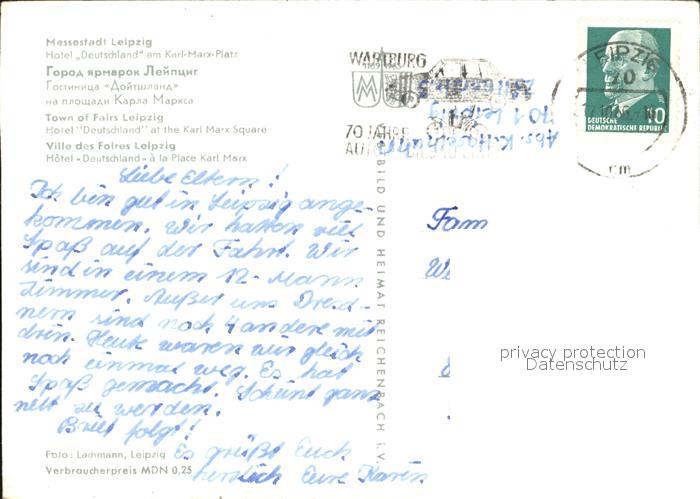 Messestadt Leipzig
Hotel „Deutschland" am Karl-Marx-Platz
Город ярмарок Лейпциг
Гостиница «Дойтшланд»
на площади Карла Маркса
Town of Fairs Leipzig
Hotel "Deutschland" at the Karl Marx Square
Ville des Foires Leipzig
Hôtel „Deutschland" à la Place Karl Marx
Liebe Eltern!
Ich bin gut in Leipzig ange-
kommen. Wir hatten viel
Spaß auf der Fahrt. Wir
sind in einem 12-Mann
Zimmer. Außer uns Dresd-
nern sind noch 4 andere mit
drin. Heute waren wir gleich
noch einmal weg. Es hat
Spaß gemacht. Scheint ganz
nett zu werden.
Brief folgt!
Es grüßt Euch
herzlich Eure Karin
Foto: Lachmann, Leipzig
Verbraucherpreis MDN 0,25
BILD UND HEIMAT REICHENBACH i. V.
WARTBURG
70 JAHRE
Abs. K.
701 Leipzig
LEIPZIG
10
DEUTSCHE
DEMOKRATISCHE REPUBLIK
cm
Fam
privacy protection
Datenschutz